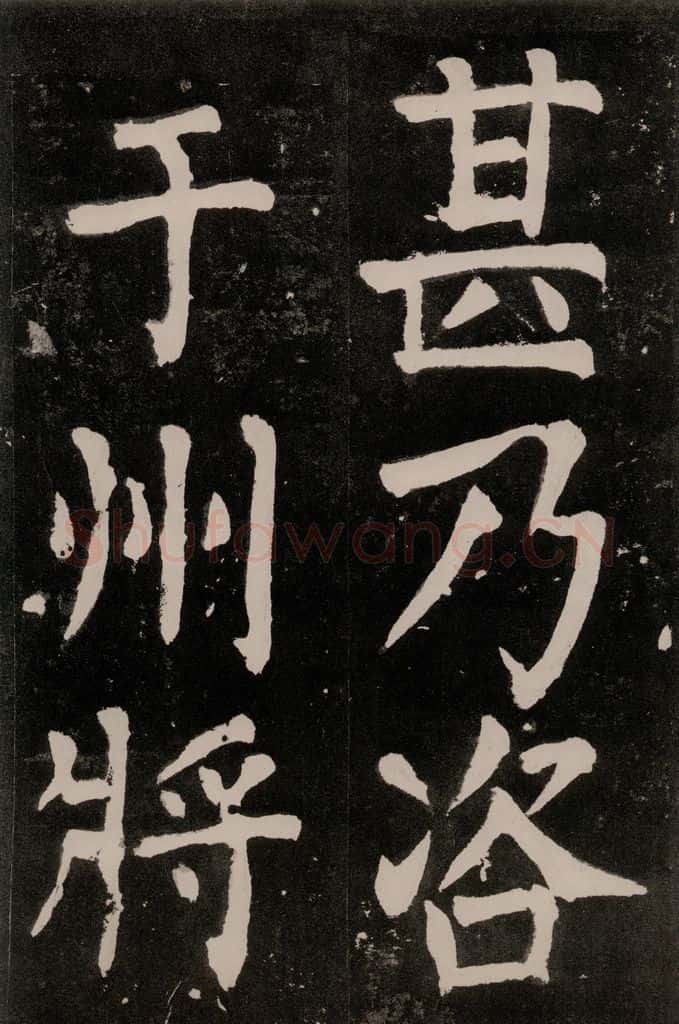 甚乃咨
于州將
Shufawang.CN